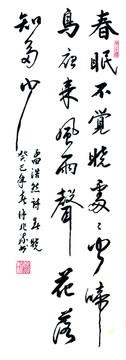 春眠不覺曉處〻聞啼
鳥夜來風雨聲花落
知多少
孟浩然詩春曉
癸巳年春